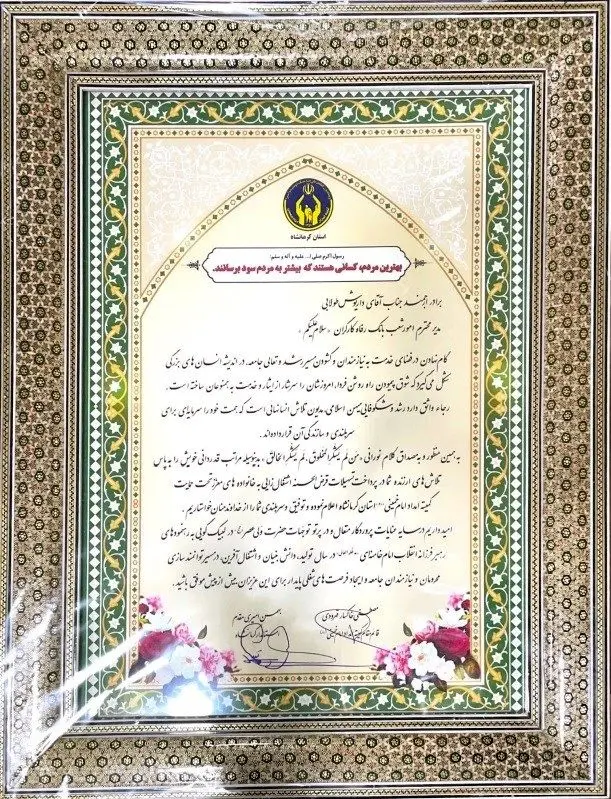 استان کرمانشاه
رسول اکرم (صلی ا... علیه و آله و سلم)
بهترین مردم، کسانی هستند که بیشتر به مردم سود برسانند.
برادر ارجمند جناب آقای داریوش طولابی
مدیر محترم امور شعب بانک رفاه کارگران ، سلام علیکم ،
گام نهادن در فضای خدمت به نیازمندان و گشودن مسیر رشد و تعالی جامعه، در اندیشه انسان های بزرگی
شکل می گیرد که شوق پیمودن راه روشن فردا، امروزشان را سرشار از ایثار و خدمت به همنوعان ساخته است.
رجاء واثق دارد رشد و شکوفایی میهن اسلامی، مدیون تلاش انسانهایی است که همت خود را سرمایه ای برای
سربلندی و سازندگی آن قرار داده اند.
به همین منظور و به مصداق کلام نورانی، من لم یشکر المخلوق، لم یشکر الخالق، بدینوسیله مراتب قدردانی خویش را به پاس
تلاش های ارزنده شما در پرداخت تسهیلات قرض الحسنه اشتغال زایی به خانواده های معزز تحت حمایت
کمیته امداد امام خمینی استان کرمانشاه اعلام نموده و توفیق و سربلندی شما را از خداوند منان خواستاریم.
امید داریم در سایه عنایات پروردگار متعال و در پرتو توجهات حضرت ولی عصر در لبیک گویی به رهنمودهای
رهبر فرزانه انقلاب امام خامنه ای در سال تولید، دانش بنیان و اشتغال آفرین، در مسیر توانمند سازی
محرومان و نیازمندان جامعه و ایجاد فرصت های شغلی پایدار برای این عزیزان، بیش از پیش موفق باشید.
مصطفی خاکسار قهرودی
بهمن امیری مقدم